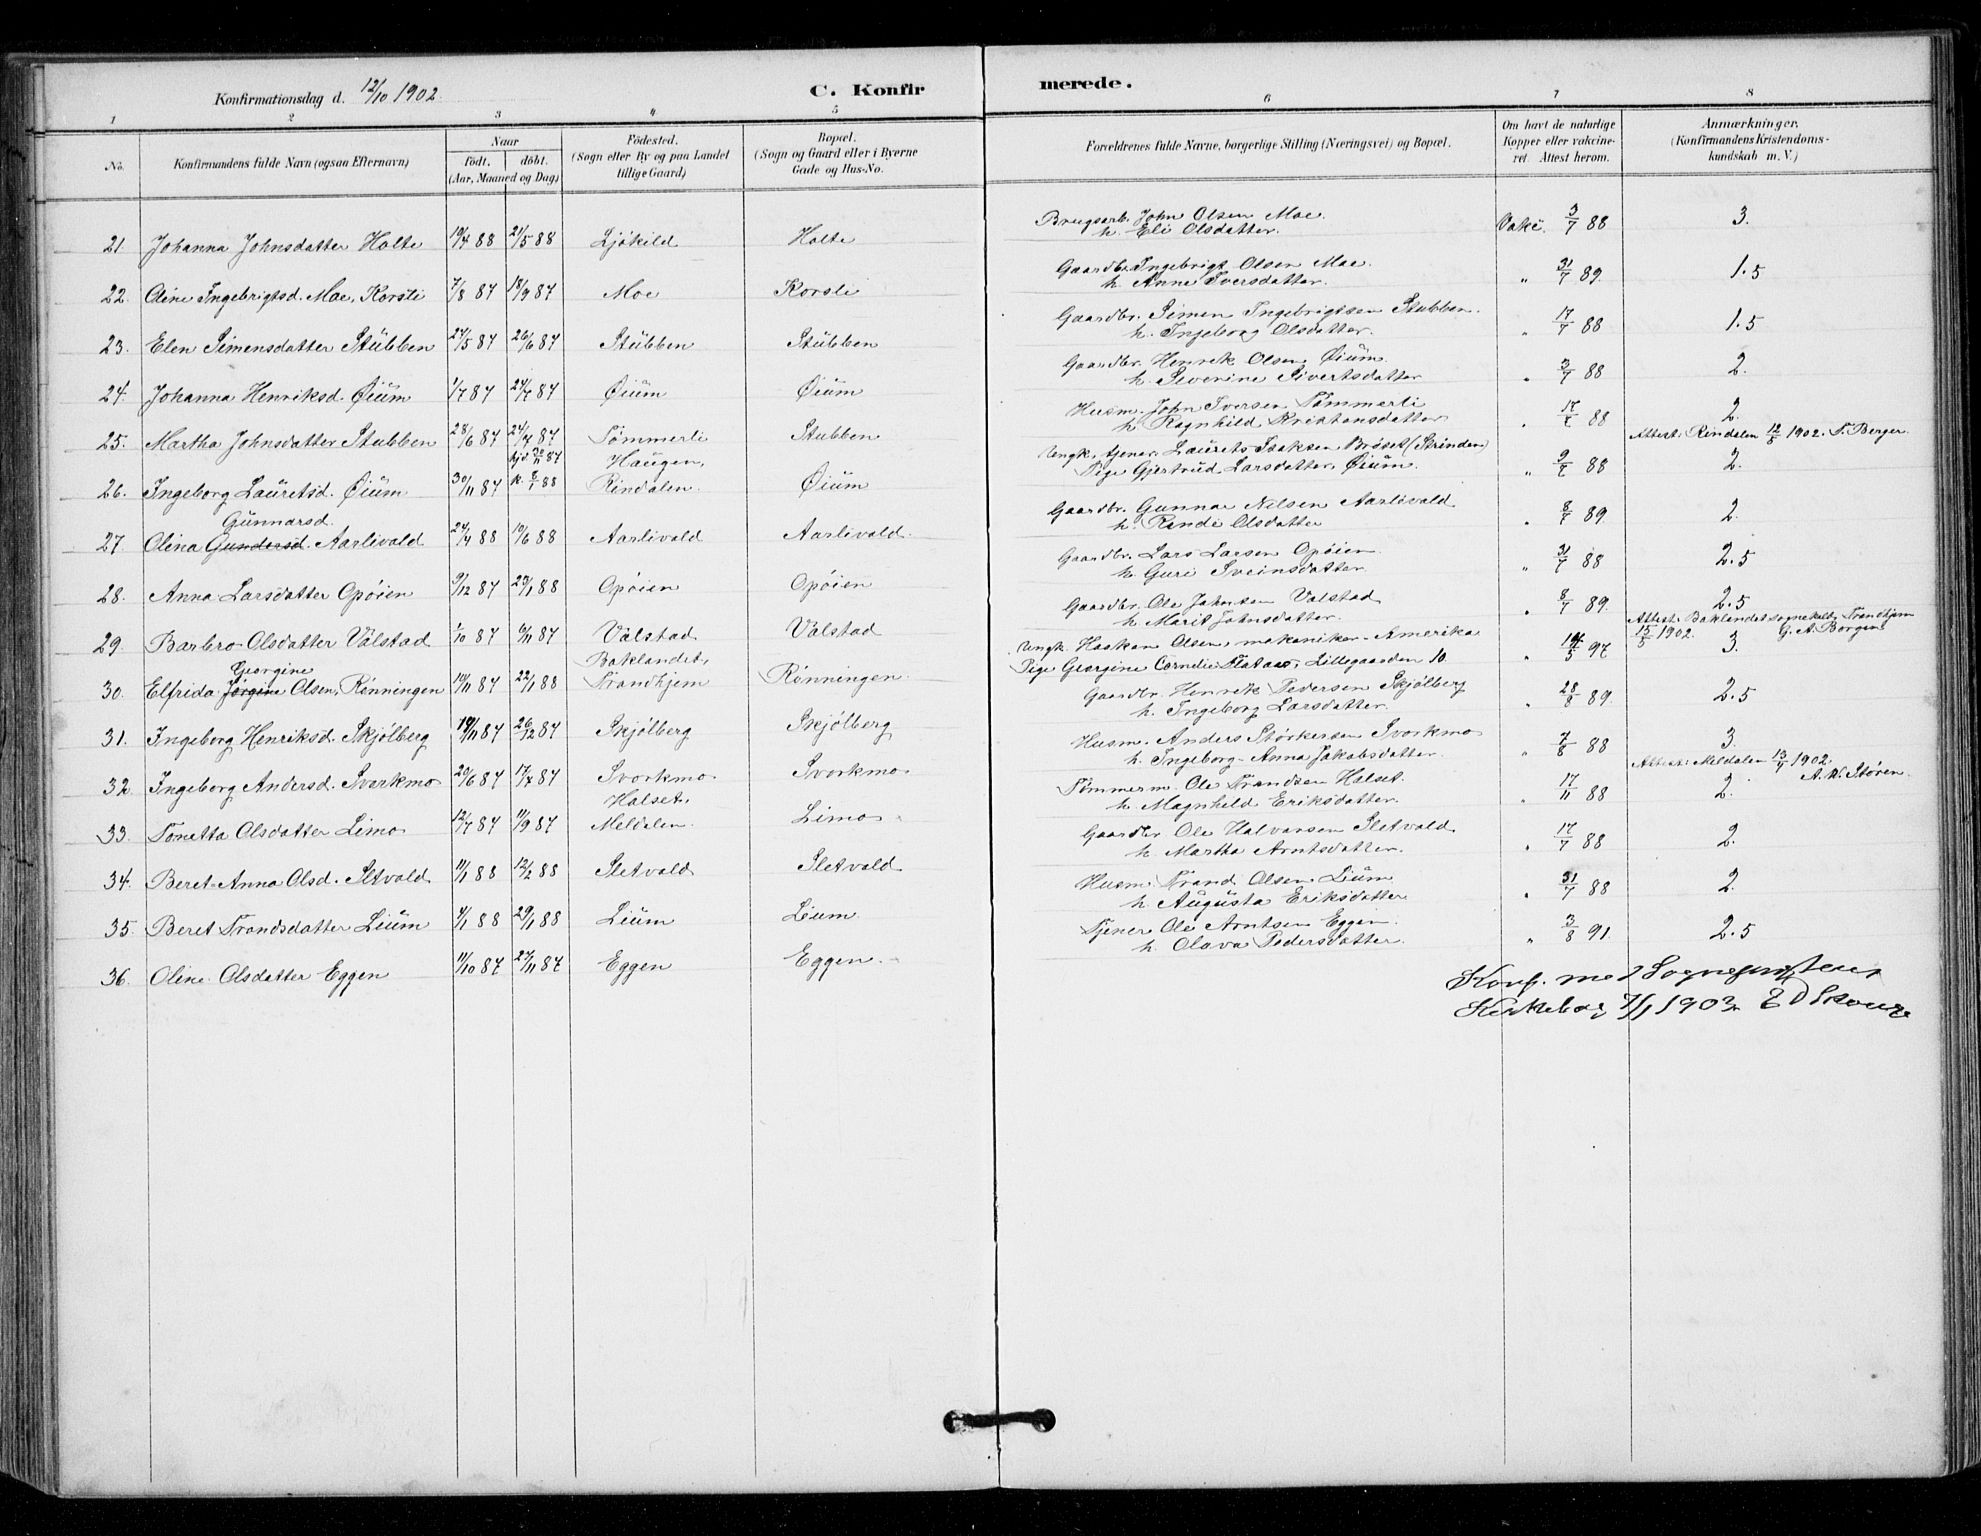 Konfirmationsdag d. 12/10 1902. C. Konfirmerede.
1 2 3 4 5 6 7 8
No. Konfirmandens fulde Navn (ogsaa Efternavn) Naar født. døbt. (Aar, Maaned og Dag) Fødested. (Sogn eller By og paa Landet tillige Gaard) Bopæl. (Sogn og Gaard eller i Byerne Gade og Hus-No. Forældrenes fulde Navne, borgerlige Stilling (Næringsvei) og Bopæl. Om havt de naturlige Kopper eller vakcineret. Attest herom. Anmærkninger. (Konfirmandens Kristendomskundskab m. V.)
21. Johanna Johnsdatter Holte 19/4 88 21/5 88 Ljøkild Holte Brugsarb. John Olsen Moe. h. Eli Olsdatter. Vakc. 3/7 88 3.
22. Oline Ingebrigtsd. Moe, Korsli 7/8 87 18/9 87 Moe Korsli Gaardbr. Ingebrigt Olsen Moe. h. Anne Iversdatter. " 31/7 89. 1.5
23. Elen Simensdatter Stubben 24/5 87 26/6 87 Stubben Stubben Gaardbr. Simen Ingebrigtsen Stubben. h. Ingeborg Olsdatter. " 17/7 88 1.5
24. Johanna Henriksd. Øium 1/7 87 24/7 87 Øium Øium Gaardbr. Henrik Olsen Øium. h. Severine Sivertsdatter " 3/7 88 2.
25. Martha Johnsdatter Stubben 28/6 87 24/7 87 Tømmerli Stubben Husm. John Iversen Tømmerli h. Ragnhild Kristiansdatter " 17/7 88 2.
Attest: Rindalen 12/8 1902. T. Berger.
26. Ingeborg Lauretsd. Øium 30/11 87 hjd. 30/11 87 k. 8/1 88 Haugen, Rindalen. Øium Ungk. tjener Laurets Isaksen Brøset (Strinden) Pige Gjertrud Larsdatter Øium. " 9/7 88 2.
27. Olina Gundersd. Gunnarsd. Aarlivald 24/4 88 10/6 88 Aarlivald Aarlivald. Gaardbr. Gunnar Nilsen Aarlivald h. Randi Olsdatter " 8/7 89. 2.
28. Anna Larsdatter Opøien 9/12 87 29/1 88 Opøien Opøien Gaardbr. Lars Larsen Opøien. h. Guri Sveinsdatter " 31/7 88 2.5
29. Barbro Olsdatter Valstad 1/10 87 6/11 87 Valstad Valstad Gaardbr. Ole Johnsen Valstad h. Marit Johnsdatter. " 8/7 89. 2.5
Attest: Baklandet sognekald, Trondhjem 15/8 1902. G. A. Borgen.
30. Elfrida Jørgine Georgine Olsen, Rønningen 10/11 87 22/1 88 Baklandet, Trondhjem Rønningen. Ungk. Haakon Olsen, mekaniker - Amerika Pige Georgine Cornelie Flataas, Lillegaarden 10. " 14/5 97 3.
31. Ingeborg Henriksd. Skjølberg 19/11 87 26/12 87 Skjølberg Skjølberg Gaardbr. Henrik Pedersen Skjølberg h. Ingeborg Larsdatter. " 28/8 89. 2.5
32. Ingeborg Andersd. Svorkmo 20/6 87 17/7 87 Svorkmo Svorkmo Husm. Anders Størkersen Svorkmo h. Ingeborg-Anna Jakobsdatter. " 7/8 88 3.
Attest: Meldalen 13/7 1902. A. W. Støren.
33. Tonetta Olsdatter Limo 12/7 87 11/9 87 Halset, Meldalen. Limo Tømmerm. Ole Trondsen Halset. h. Magnhild Eriksdatter. " 17/11 88 2.
34. Beret-Anna Olsd. Sletvold 11/1 88 12/2 88 Sletvold Sletvold Gaardbr. Ole Halvorsen Sletvold h. Martha Arntsdatter. " 17/7 88 2.
35. Beret Trondsdatter Lium 4/1 88 29/1 88 Lium Lium Husm. Trond Olsen Lium h. Augusta Eriksdatter " 31/7 88 2.
36. Oline Olsdatter Eggen 11/10 87 27/11 87 Eggen Eggen. Tjener Ole Arntsen Eggen. h. Olava Pedersdatter. " 3/8 91. 2.5
Konf. med Sogneprestens
Kirkebog 7/1 1903.